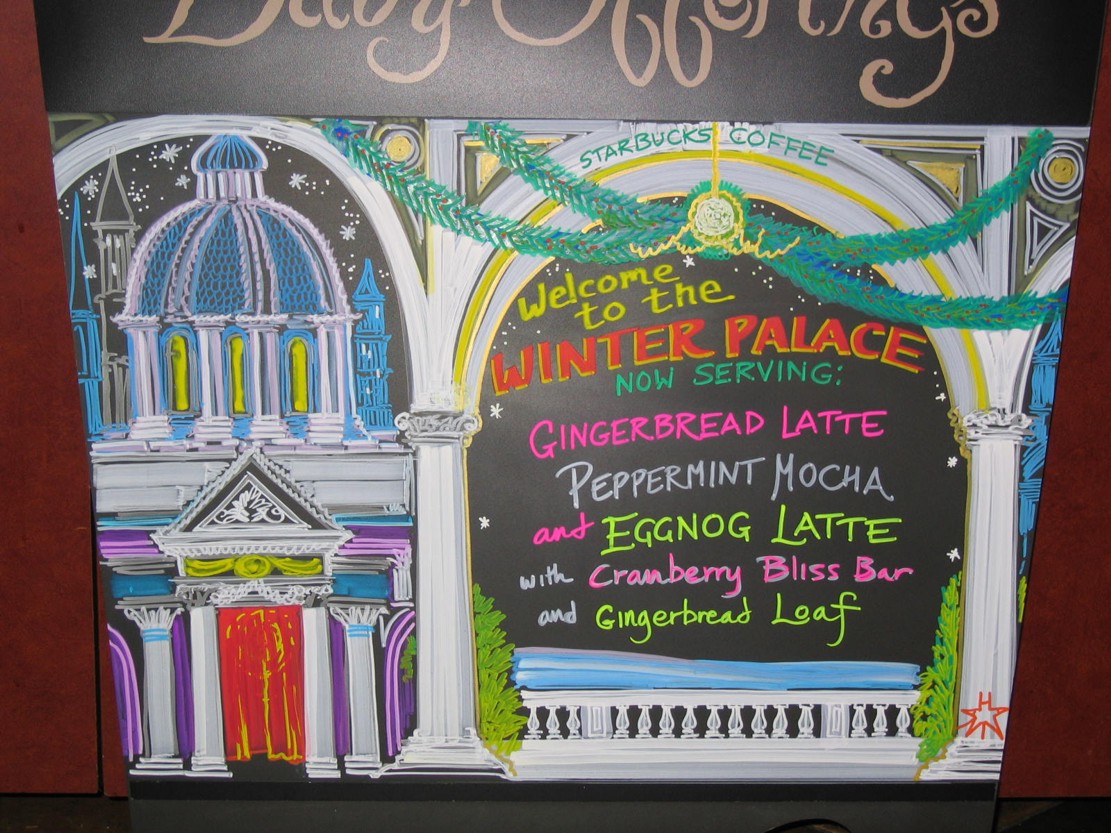 Daily Offerings
STARBUCKS COFFEE
Welcome
to the
WINTER PALACE
NOW SERVING:
GINGERBREAD LATTE
PEPPERMINT MOCHA
and EGGNOG LATTE
with Cranberry Bliss Bar
and Gingerbread Loaf